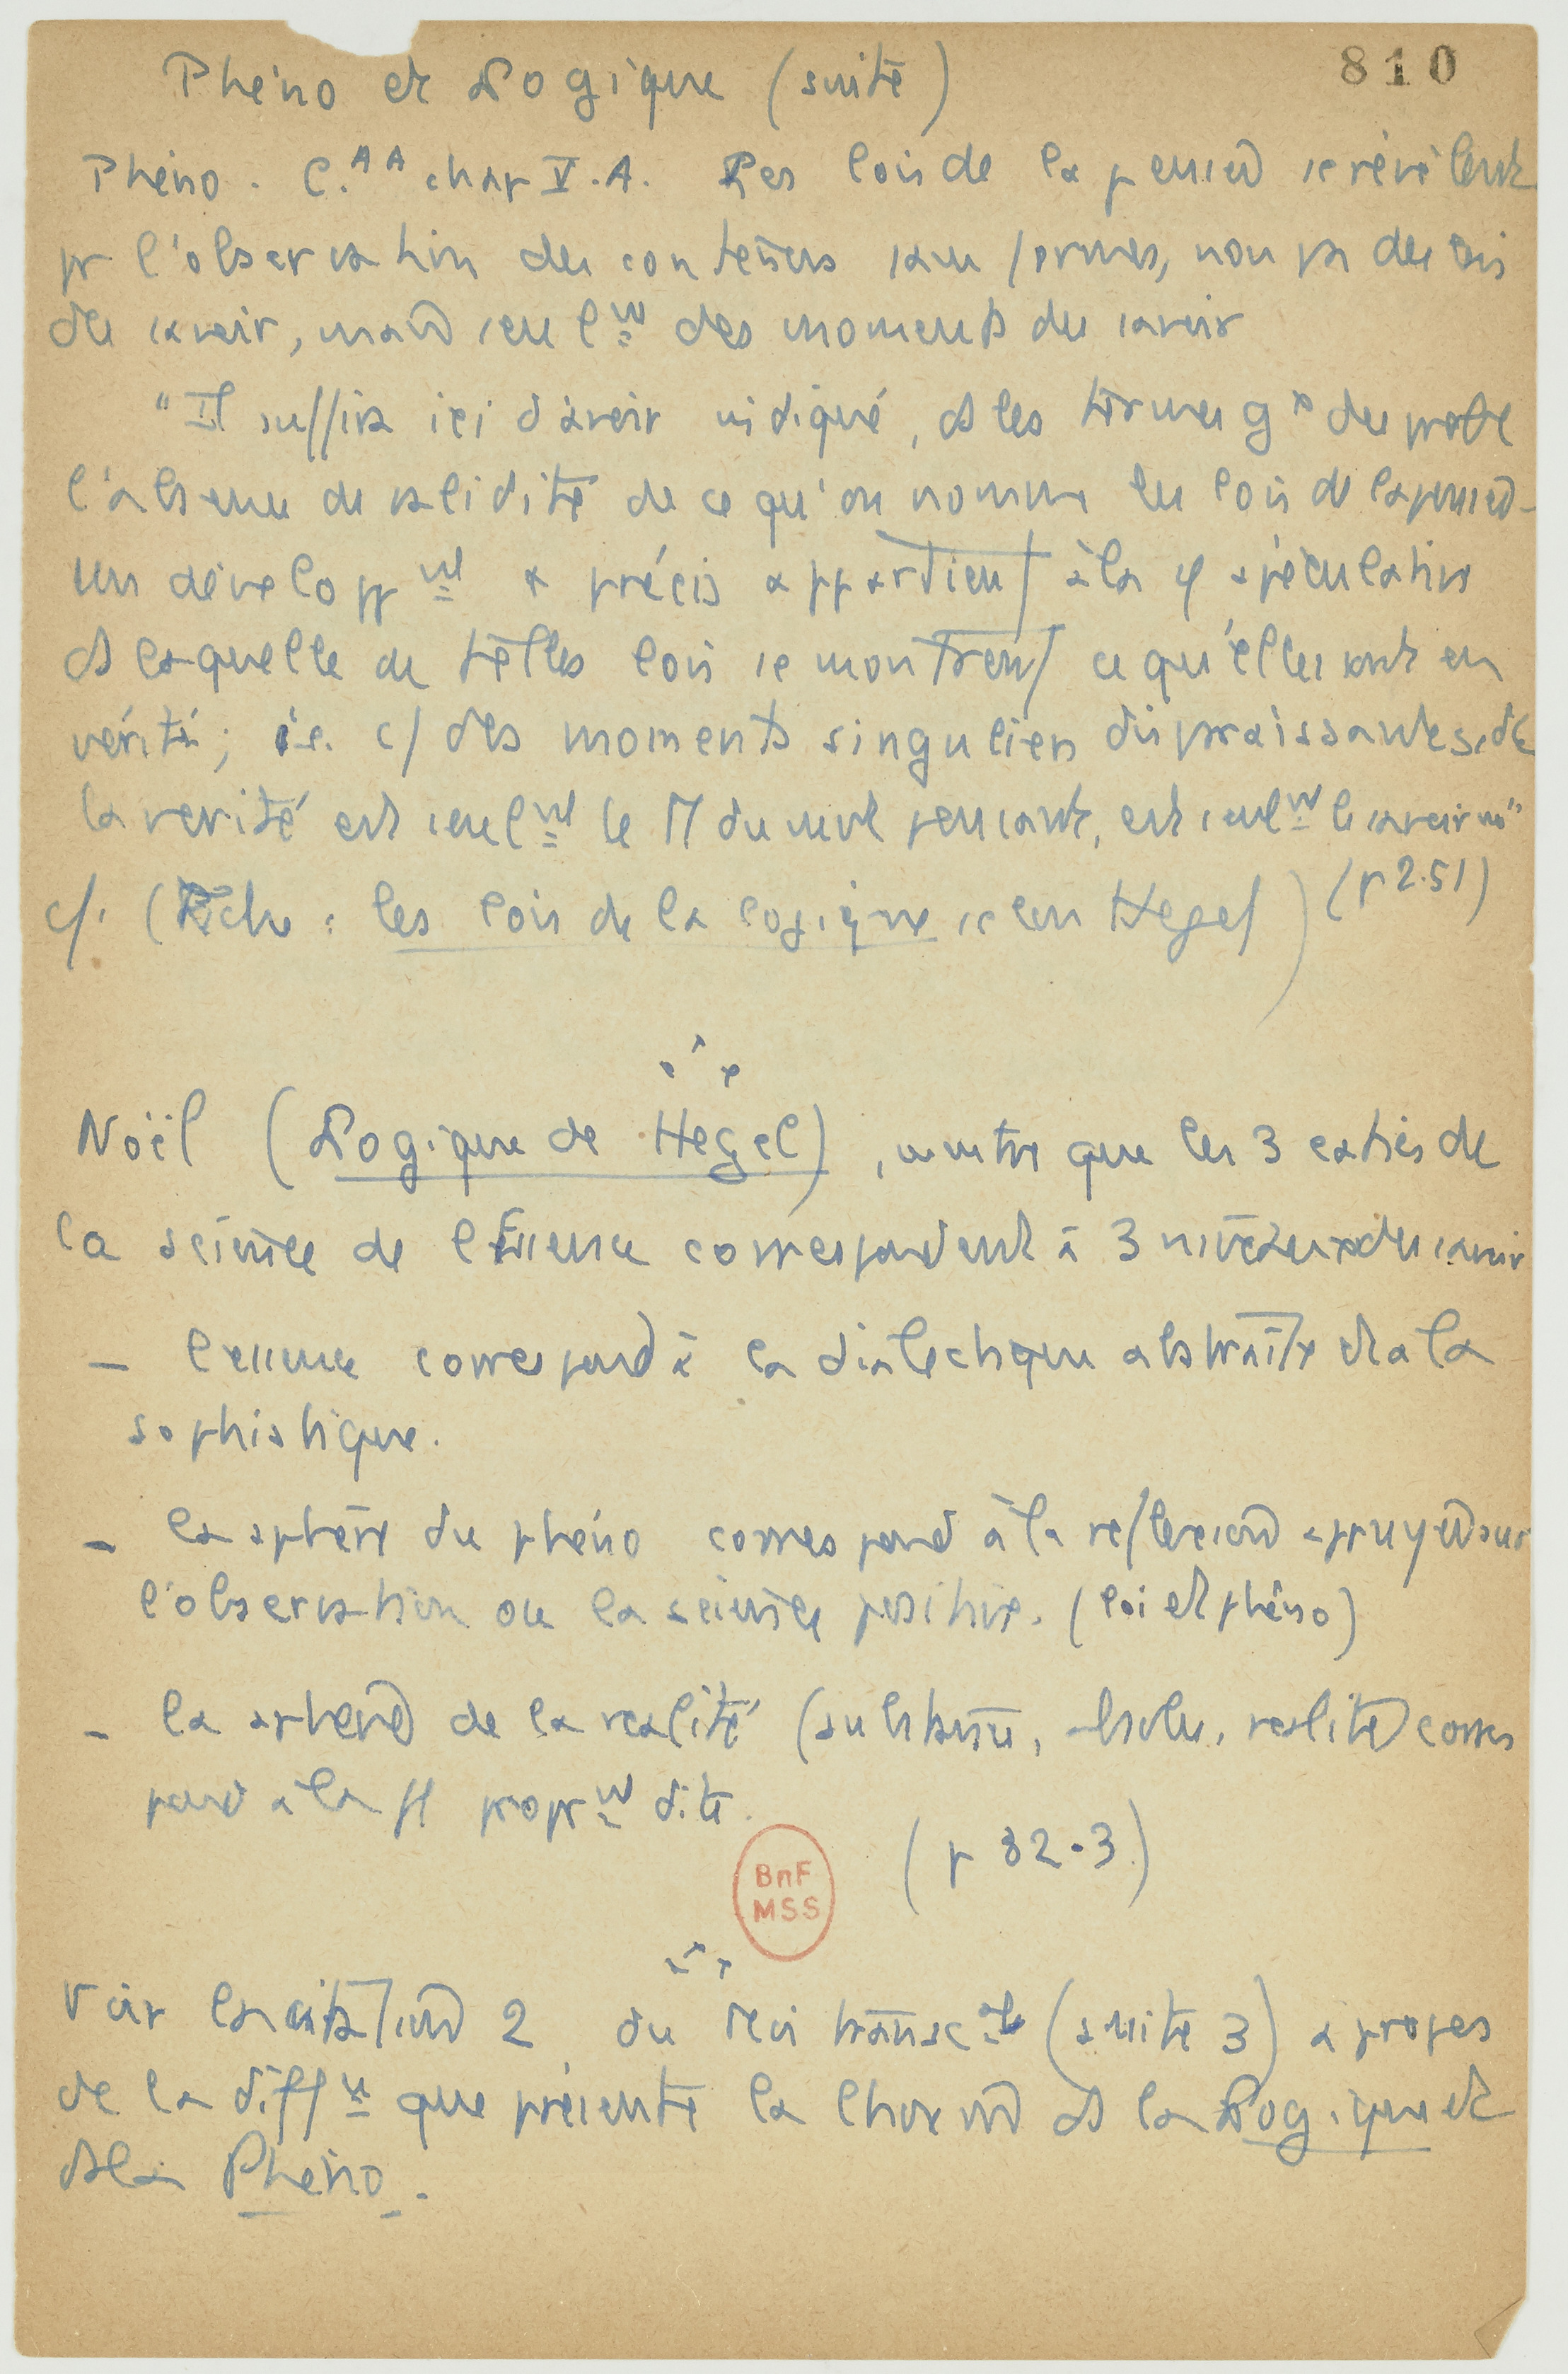 810
Phéno et Logique (suite)
Phéno. C. AA chap V.A. Les lois de la pensée se révèlent
pr l'observation des contenus sans formes, non pas des lois
du savoir, mais seulmt des moments du savoir
"Il suffira ici d'avoir indiqué, ds les termes gx du probl
l'absence de validité de ce qu'on nomme les lois de la pensée -
Un développmt + précis appartient à la φ spéculative
ds laquelle de telles lois se montrent ce qu'elles sont en
vérité; i.e. c/ des moments singuliers disparaissants, dt
la vérité est seulmt le M du mvt pensant, est seulmt le savoir mê"
cf. (Fiche : les lois de la logique selon Hegel) (p 251)
Noël (Logique de Hegel), montre que les 3 parties de
la science de l'Essence correspondent à 3 niveaux du savoir
— l'essence correspond à la dialectique abstraite et à la
sophistique.
— la sphère du phéno correspond à la réflexion appuyée sur
l'observation ou la science positive. (loi et phéno)
— la sphère de la réalité (substance, absolu, réalité) corres
pond à la φ proprmt dite.
(p 82-3)
BnF
MSS
Voir la citation 2 du Moi transcal (suite 3) à propos
de la diffce que présente la ds la Logique et
ds la Phéno.